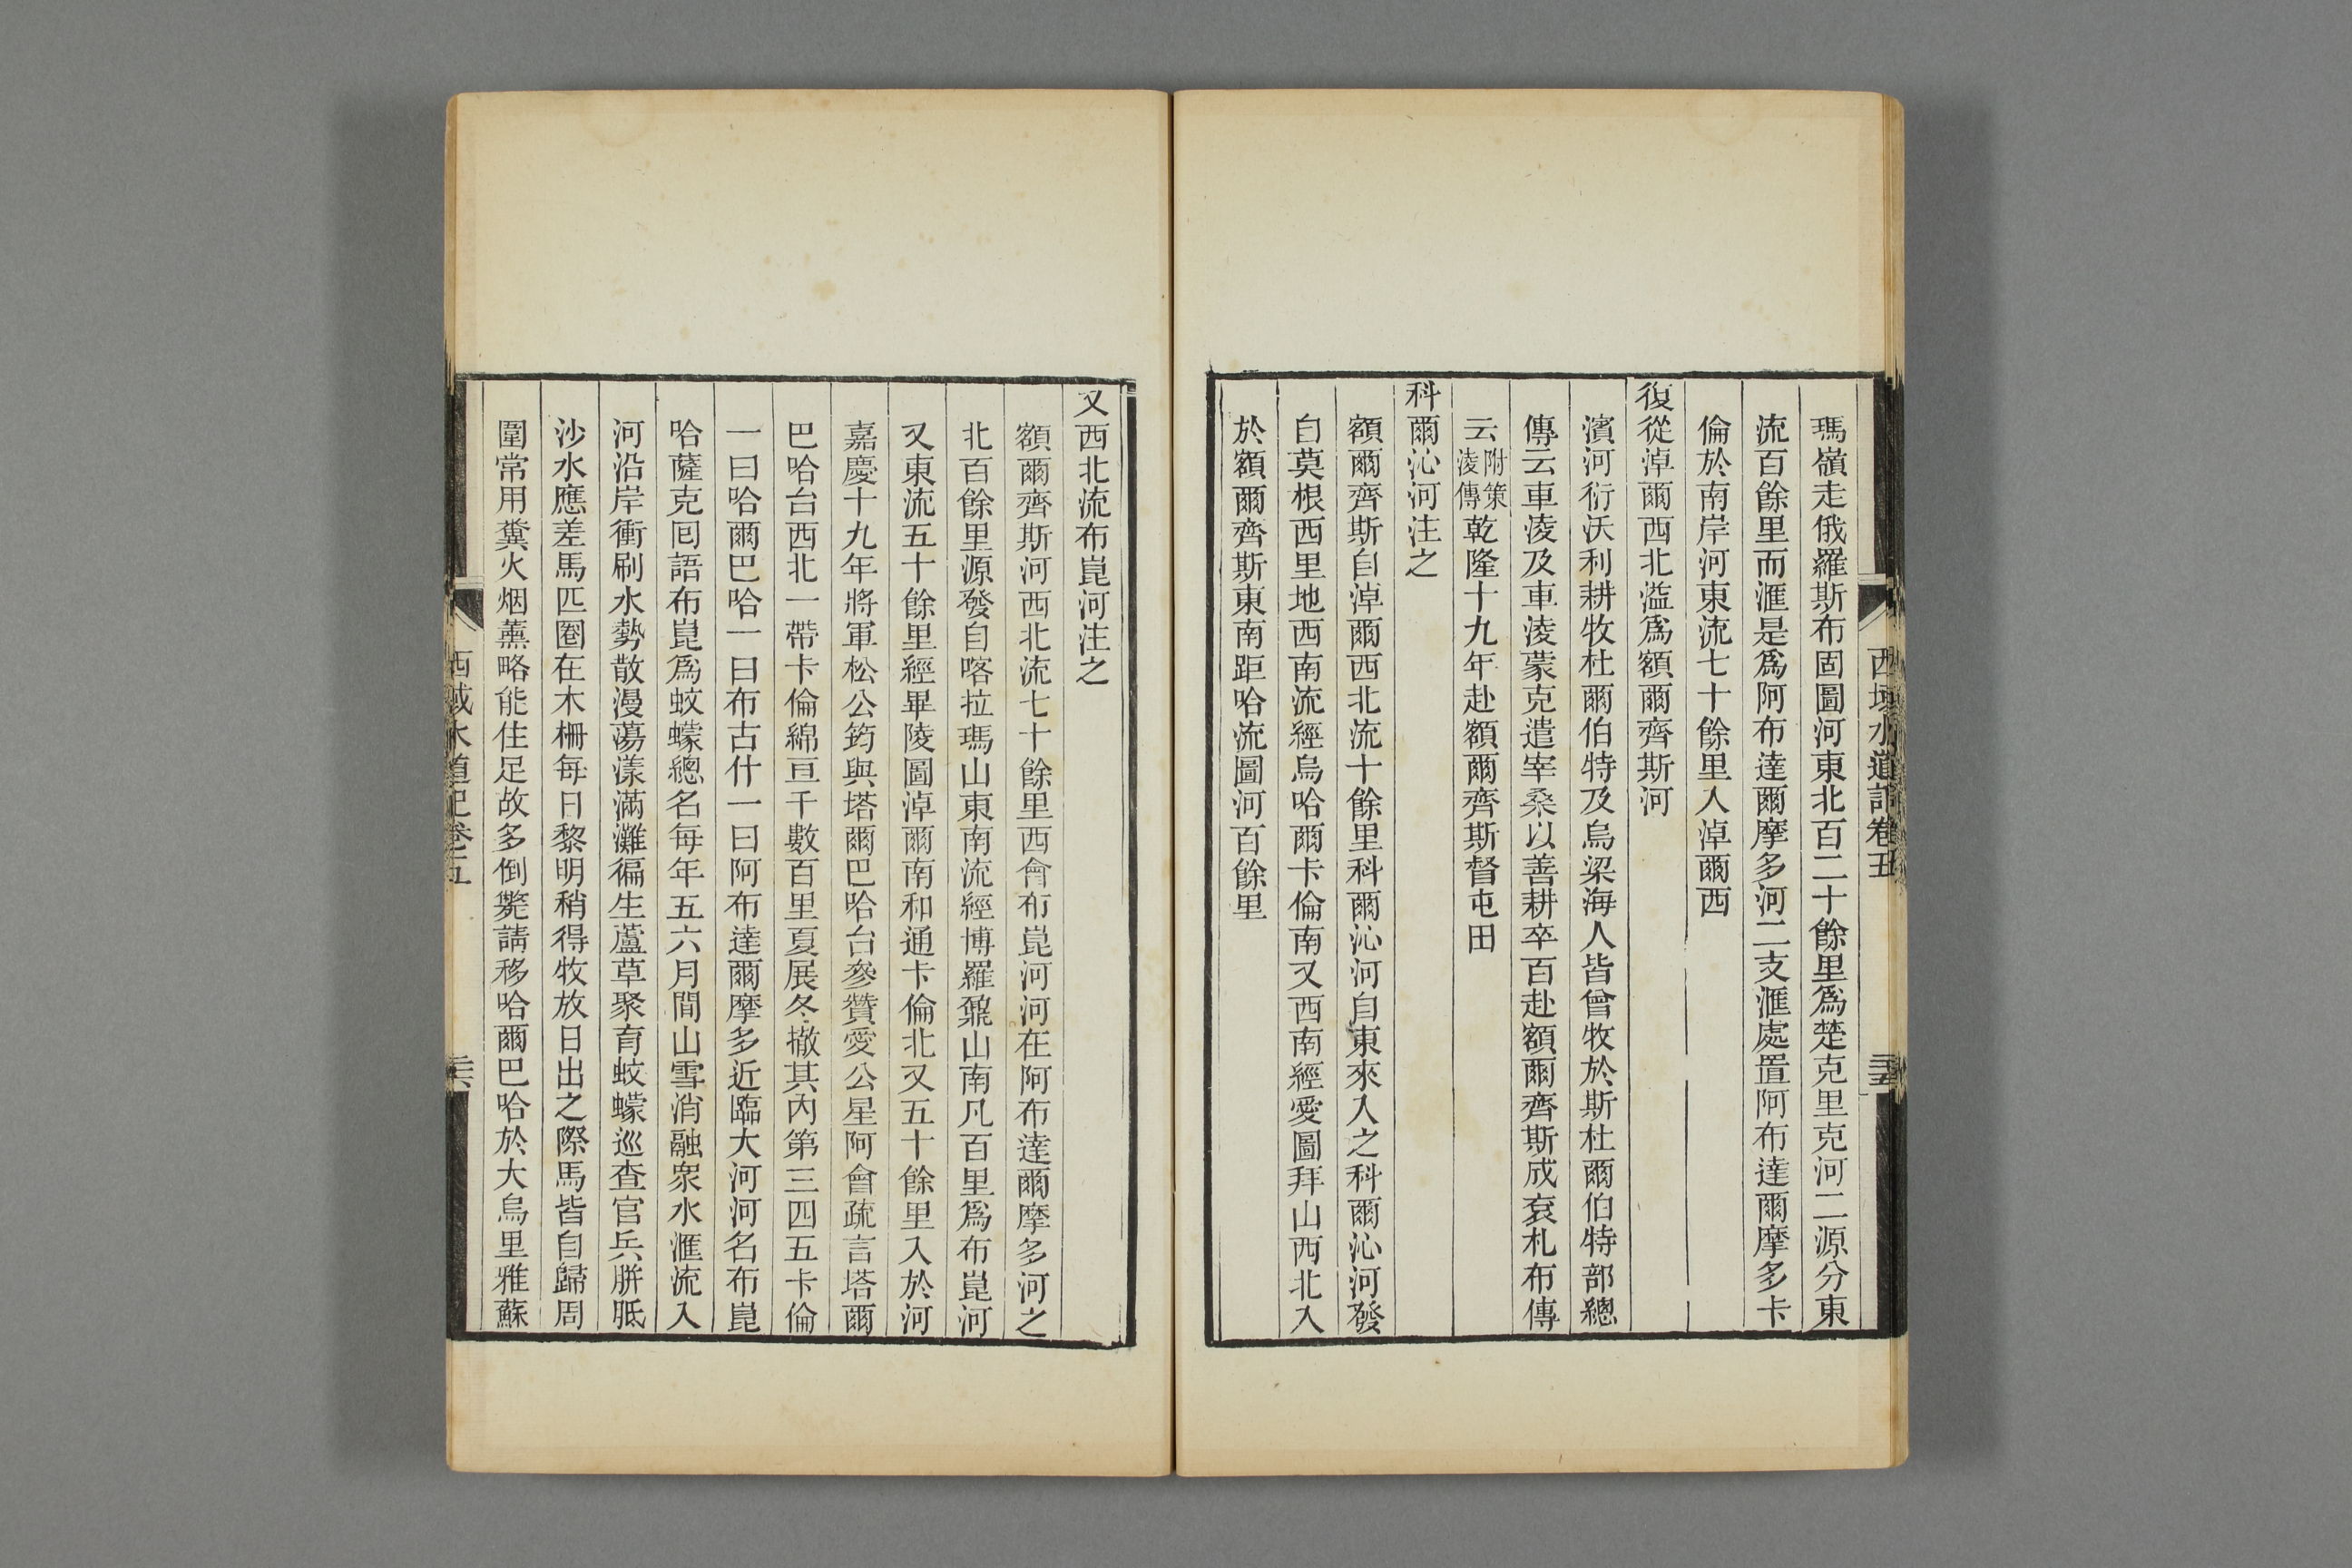 西域水道記卷五
三十五
瑪嶺走俄羅斯布固圖河東北百二十餘里爲楚克里克河二源分東
流百餘里而滙是爲阿布達爾摩多河二支滙處置阿布達爾摩多卡
倫於南岸河東流七十餘里入淖爾西
復從淖爾西北溢爲額爾齊斯河
濱河衍沃利耕牧杜爾伯特及烏梁海人皆曾牧於斯杜爾伯特部總
傳云車淩及車淩蒙克遣宰桑以善耕卒百赴額爾齊斯成袞札布傳
云附策淩傳乾隆十九年赴額爾齊斯督屯田
科爾沁河注之
額爾齊斯自淖爾西北流十餘里科爾沁河自東來入之科爾沁河發
自莫根西里地西南流經烏哈爾卡倫南又西南經愛圖拜山西北入
於額爾齊斯東南距哈流圖河百餘里
又西北流布崑河注之
額爾齊斯河西北流七十餘里西會布崑河河在阿布達爾摩多河之
北百餘里源發自喀拉瑪山東南流經博羅鼐山南凡百里爲布崑河
又東流五十餘里經畢陵圖淖爾南和通卡倫北又五十餘里入於河
嘉慶十九年將軍松公筠與塔爾巴哈台參贊愛公星阿會疏言塔爾
巴哈台西北一帶卡倫綿亘千數百里夏展冬撤其內第三四五卡倫
一曰哈爾巴哈一曰布古什一曰阿布達爾摩多近臨大河河名布崑
哈薩克囘語布崑爲蚊蠓總名每年五六月間山雪消融衆水滙流入
河沿岸衝刷水勢散漫蕩漾滿灘徧生蘆草聚育蚊蠓巡查官兵胼胝
沙水應差馬匹圈在木柵每日黎明稍得牧放日出之際馬皆自歸周
圍常用糞火烟薰略能住足故多倒斃請移哈爾巴哈於大烏里雅蘇
西域水道記卷五
三十六